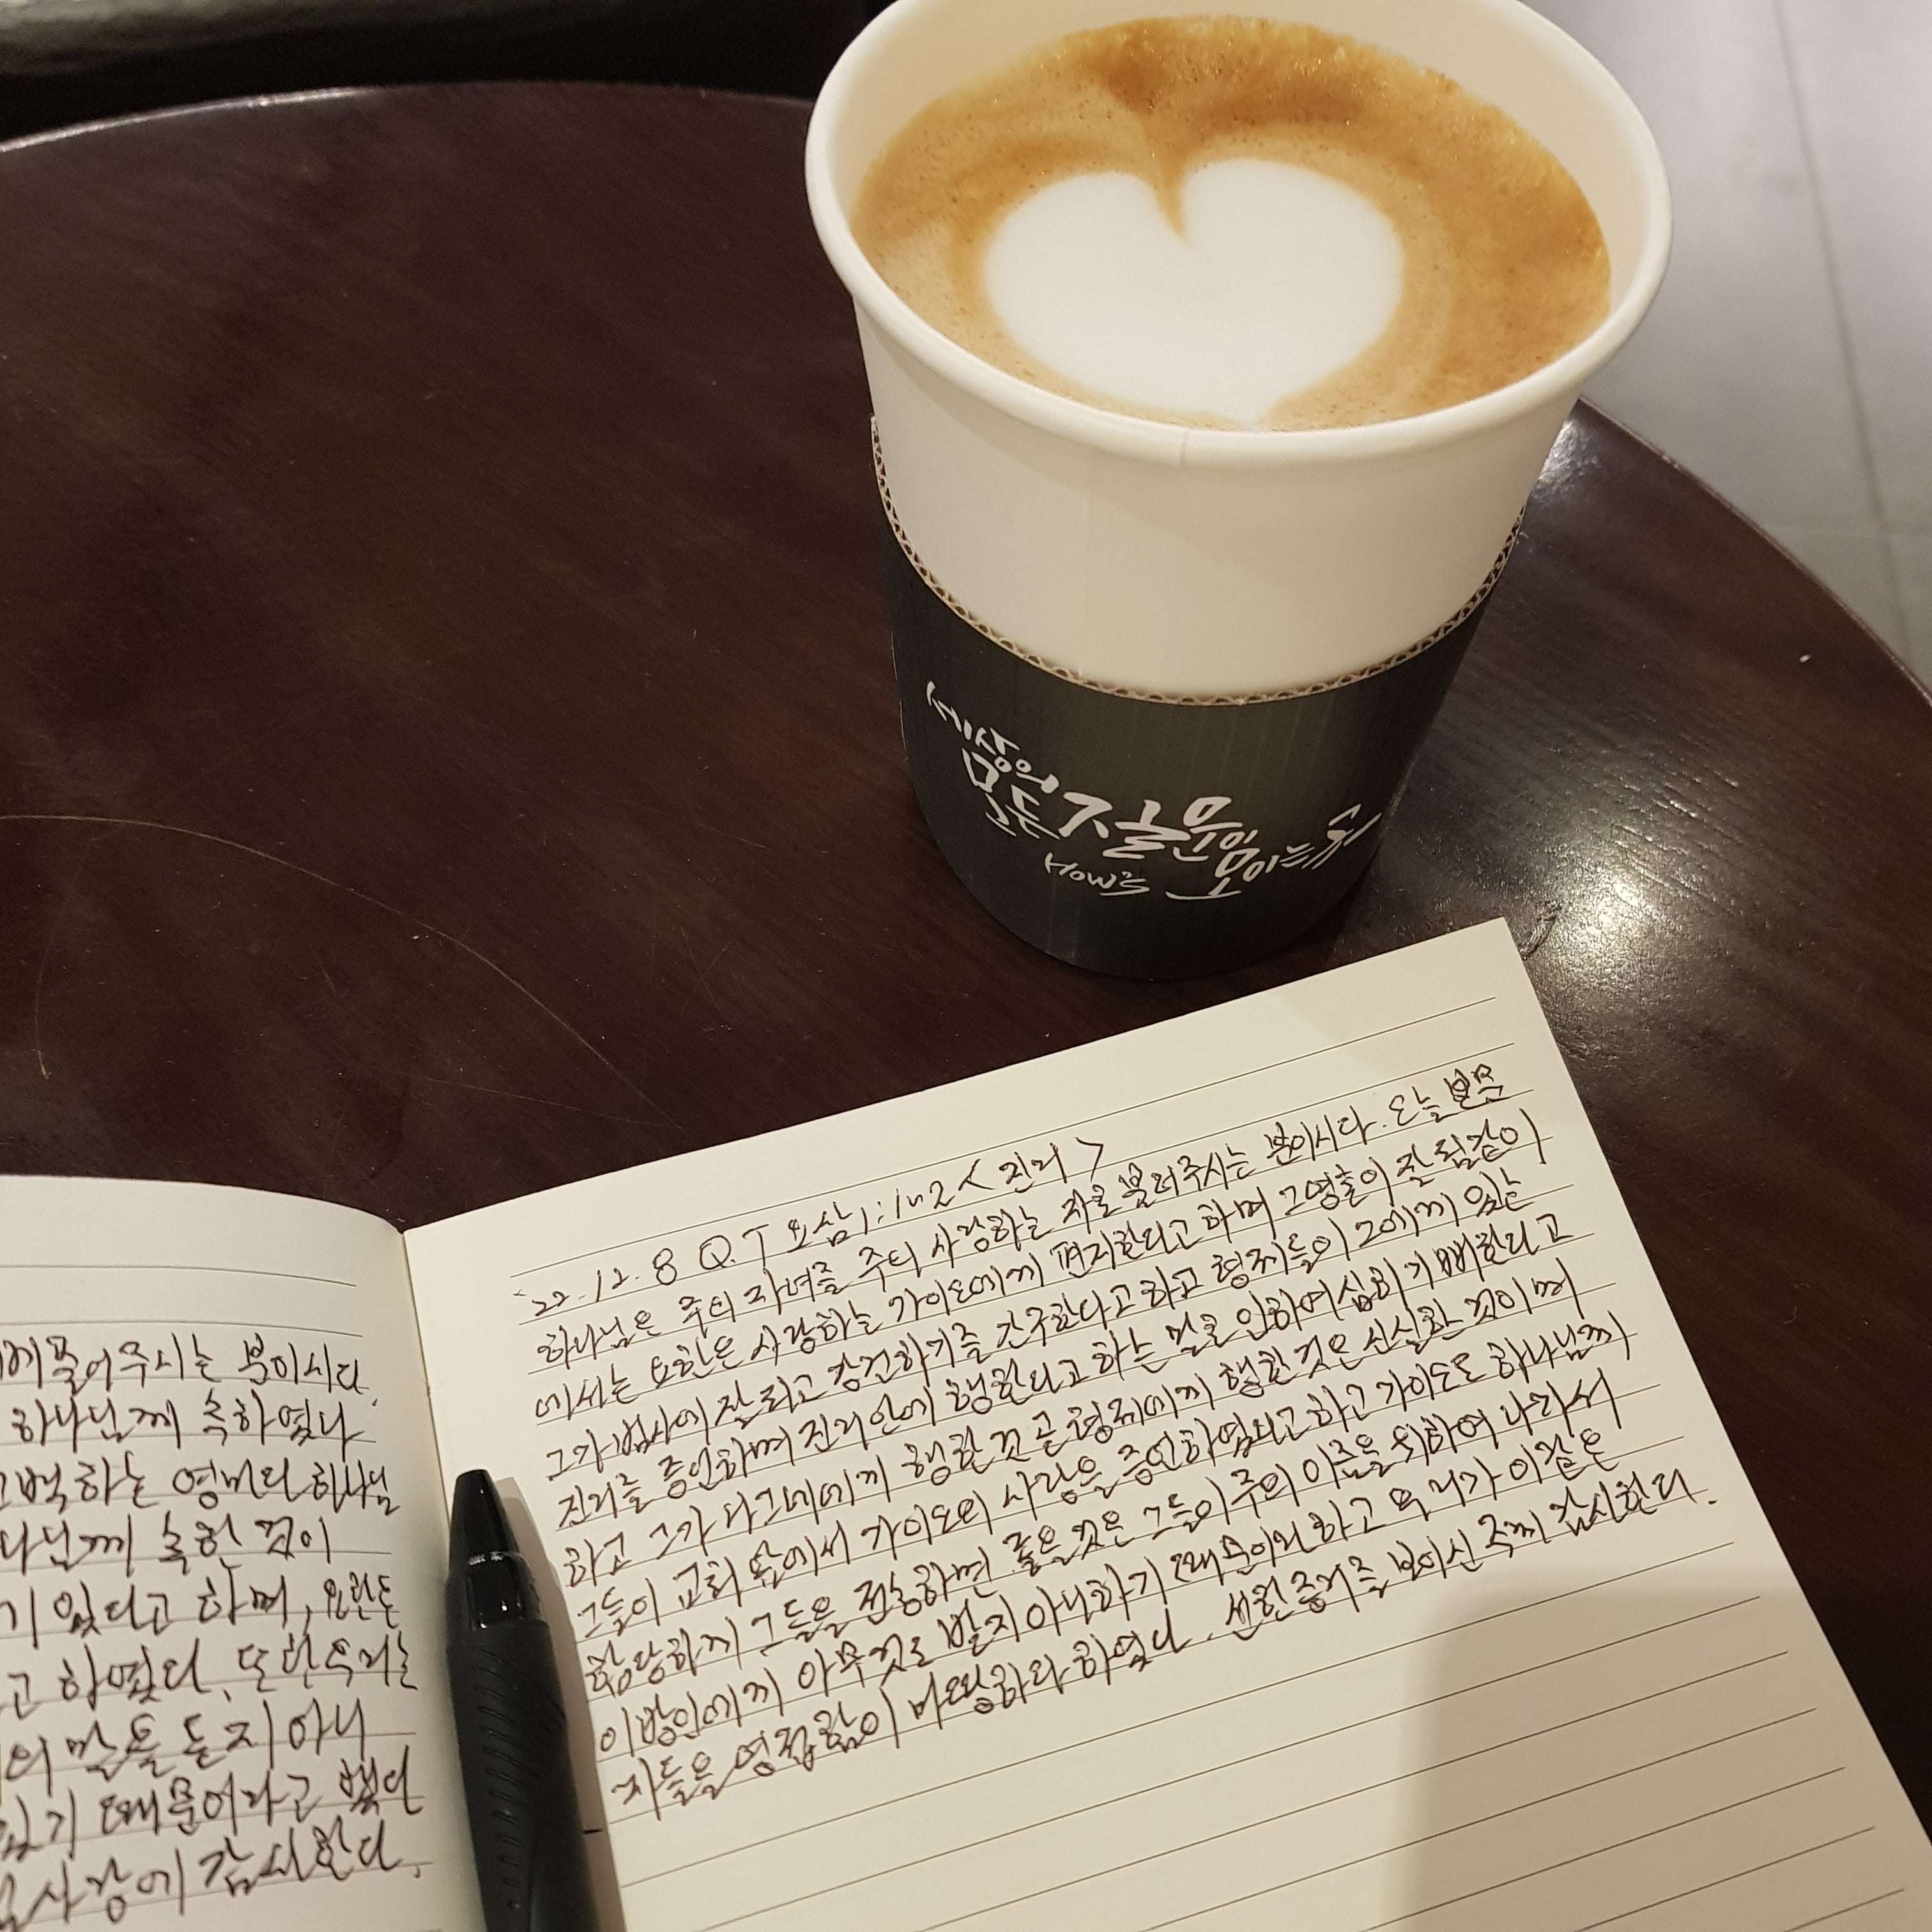 세상의
모든 질문이 모이는 곳
HOW's
'22.12.8 Q.T 요삼1:1~12 <진리>
하나님은 주의 자녀를 주의 사랑하는 자로 불러주시는 분이시다. 오늘 본문
에서는 요한은 사랑하는 가이오에게 편지한다고 하며 그 영혼이 잘됨같이
그가 범사에 잘되고 강건하기를 간구한다고 하고 형제들이 그에게 있는
진리를 증언하며 진리 안에 행한다고 하는 말로 인하여 심히 기뻐한다고
하고 그가 나그네에게 행한 것 곧 형제에게 행한 것은 신실한 것이며
그들이 교회 앞에서 가이오의 사랑을 증언하였다고 하고 가이오도 하나님께
합당하게 그들을 전송하면 좋은 것은 그들이 주의 이름을 위하여 나가서
이방인에게 아무것도 받지 아니하기 때문이라 하고 우리가 이같은
자들을 영접함이 마땅하다 하였다. 선한 증거를 보이신 주께 감사한다.
풀어주시는 분이시다.
하나님께 속하였나
고백하는 영마다 하나님
나님께 속한 것이
기 있다고 하며, 요한은
고 하였다. 또한 우리는
의 말을 듣지 아니
있기 때문이라고 했다
사랑에 감사한다.